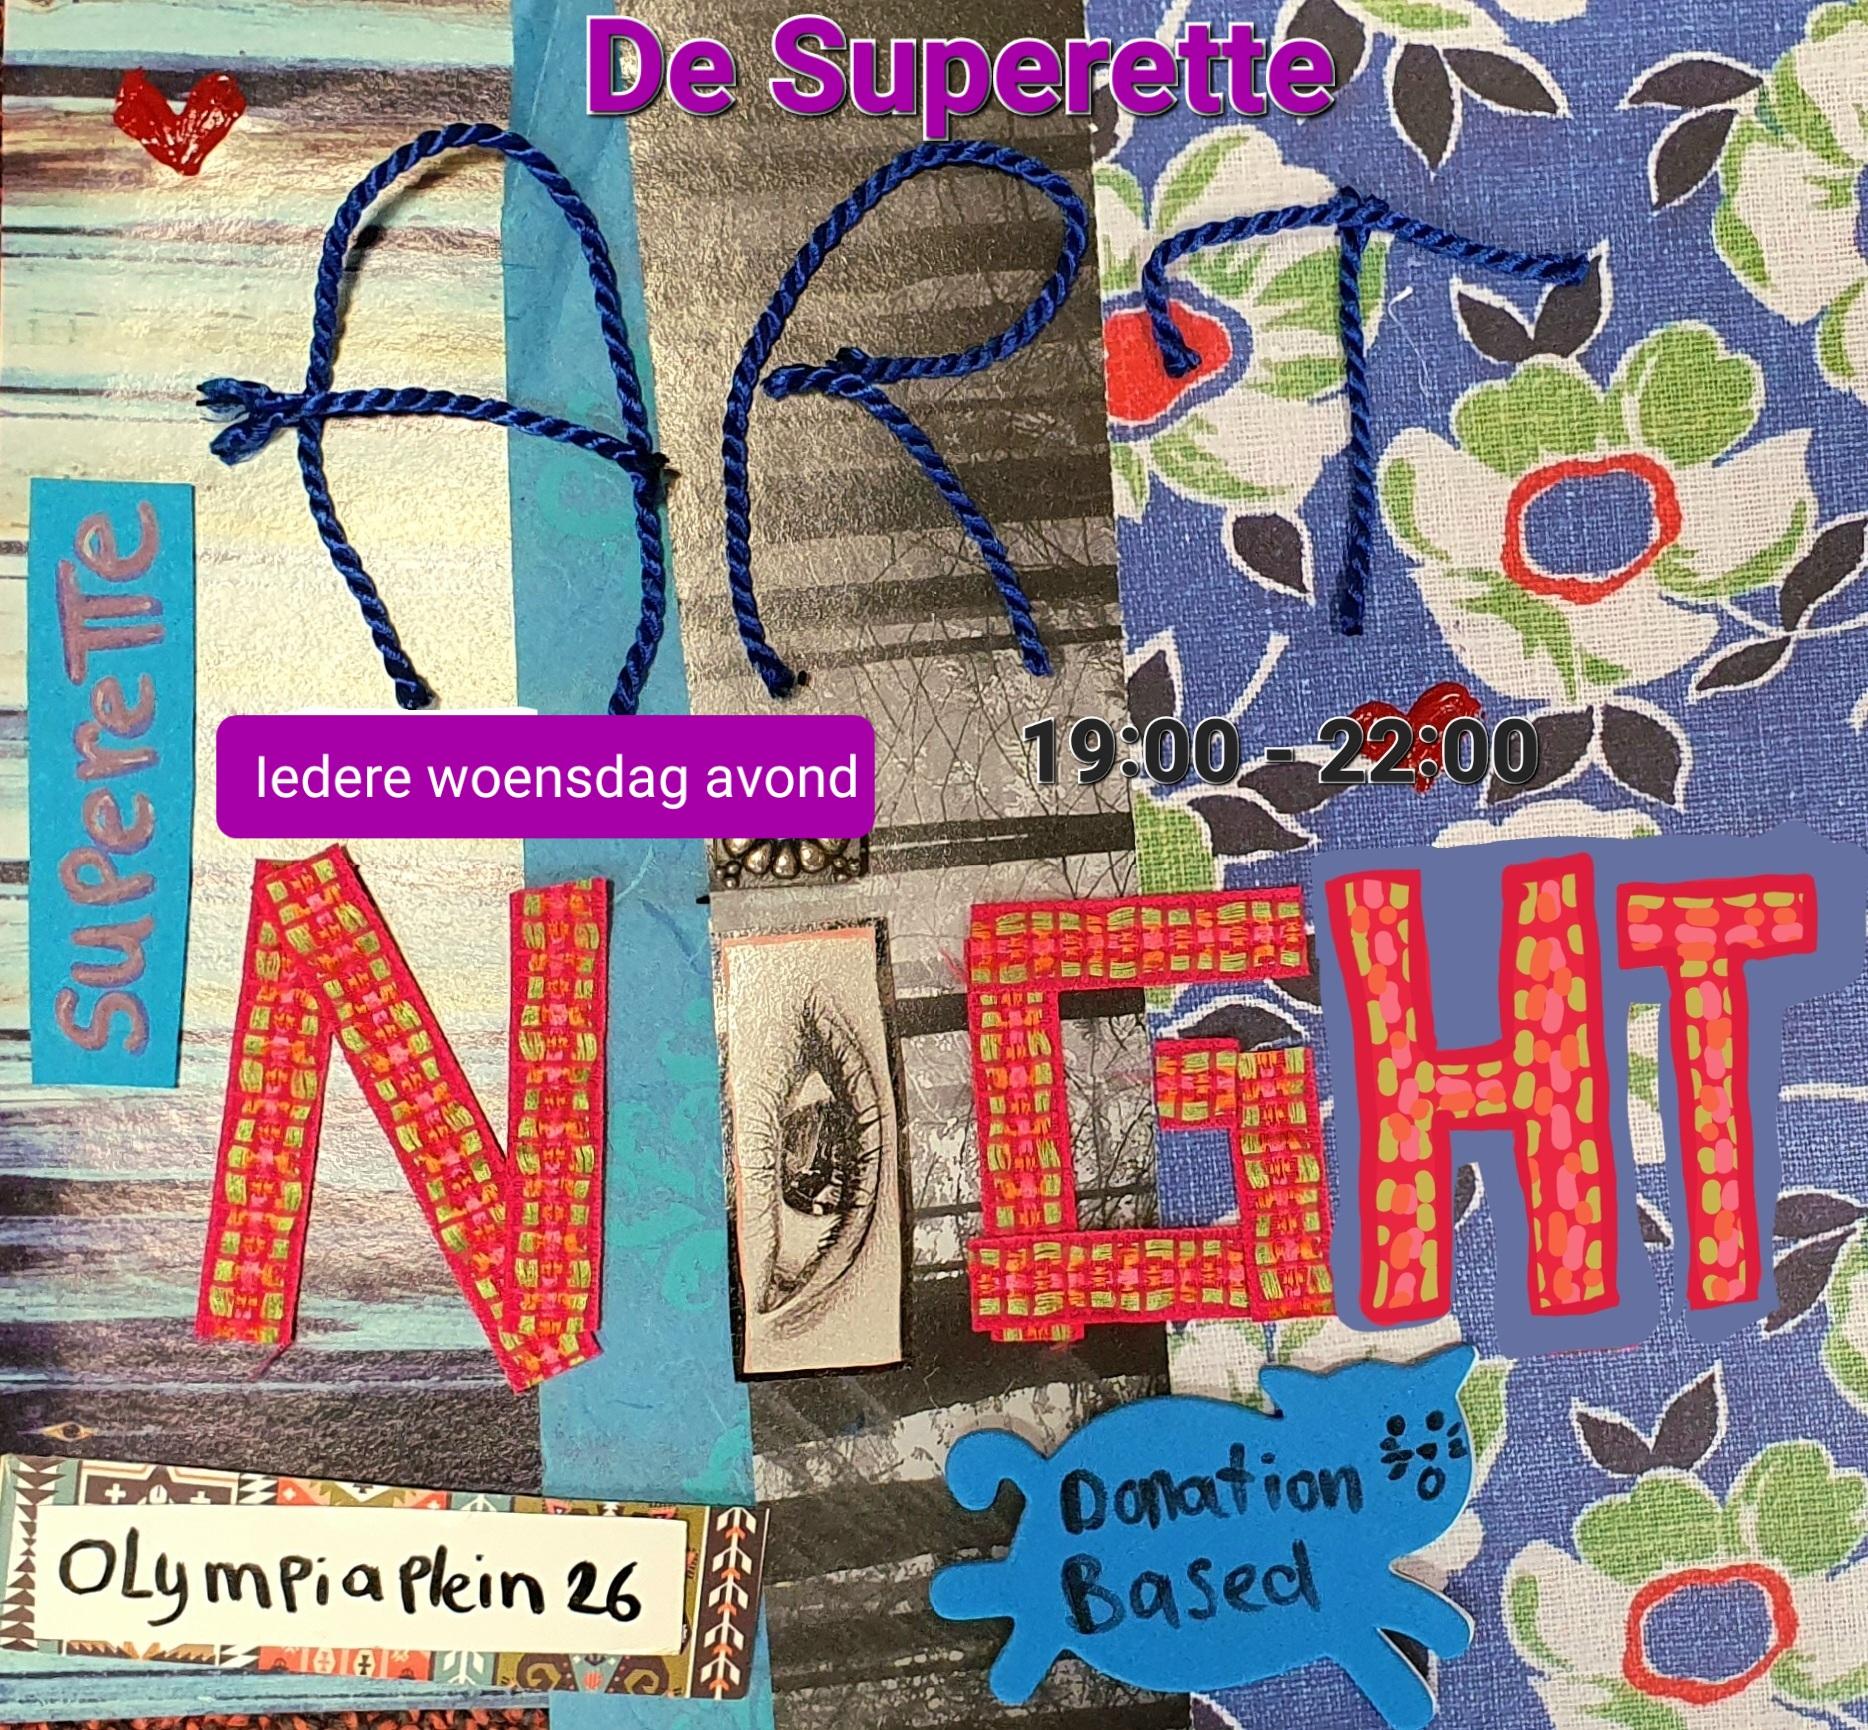 De Superette
ART
SuPereTTe
Iedere woensdag avond
19:00 - 22:00
NIGHT
OLympiaPlein 26
Donation
Based